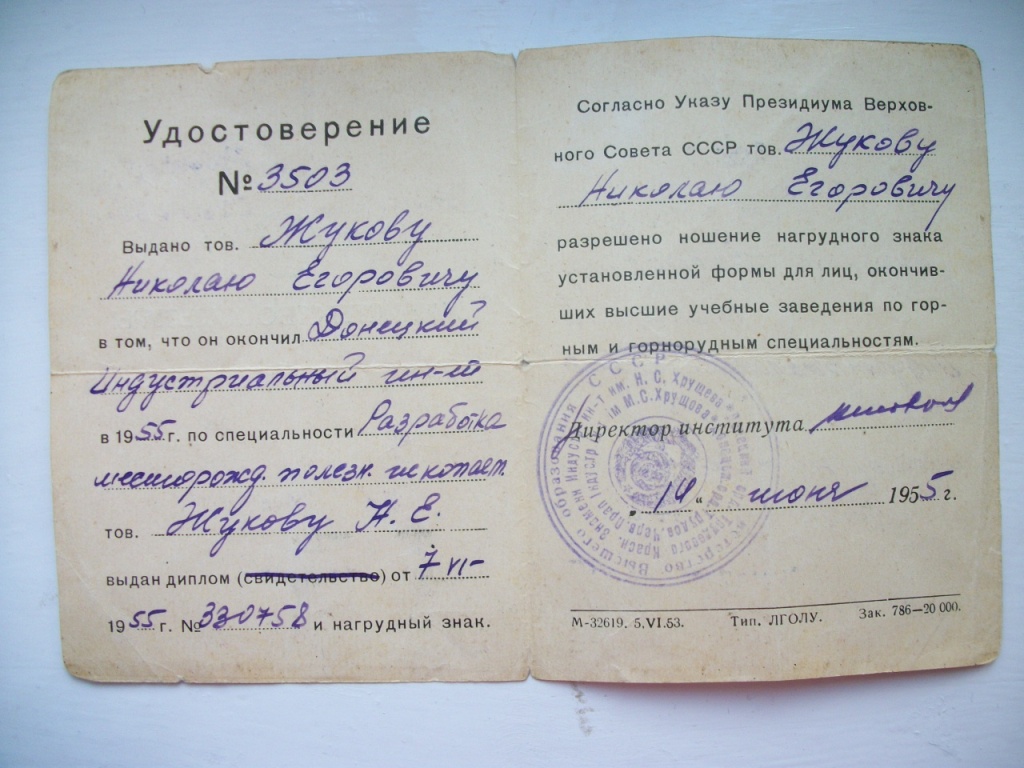 Удостоверение
№ 3503
Выдано тов. Жукову
Николаю Егоровичу
в том, что он окончил Донецкий
Индустриальный ин-ий
в 1955 г. по специальности Разработка
месторожд. полезн. ископает.
тов. Жукову Н. Е.
выдан диплом (свидетельство) от 7 VI-
1955 г. № 330758 и нагрудный знак.
Согласно Указу Президиума Верхов-
ного Совета СССР тов. Жукову
Николаю Егоровичу
разрешено ношение нагрудного знака
установленной формы для лиц, окончив-
ших высшие учебные заведения по гор-
ным и горнорудным специальностям.
Директор института
"14" июня 1955 г.
М-32619. 5.VI.53. Тип. ЛГОЛУ. Зак. 786—20 000.
Высшего образования СССР
им. Н. С. Хрущева
ім М.С.Хрущова